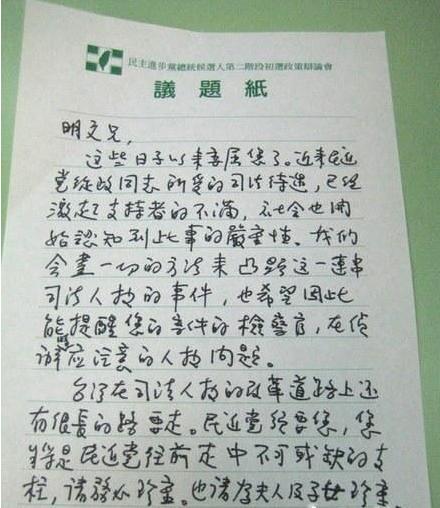 民主進步黨總統候選人第二階段初選政策辯論會
議題紙
明文兄,
這些日子以來委屈您了。近來民進
党從政同志所受的司法待遇，已經
激起了支持者的不滿，社会也開
始認知到此事的嚴重性。我們
会盡一切的方法來凸顯這一連串
司法人权的事件，也希望因此
能提醒您的案件的檢察官，在偵
辦應注意的人权問題。
台湾在司法人权的改革道路上还
有很長的路要走。民進党須要您，您
將是民進党往前走中不可或缺的支
柱，請務必珍重。也請尊夫人及子女珍重。